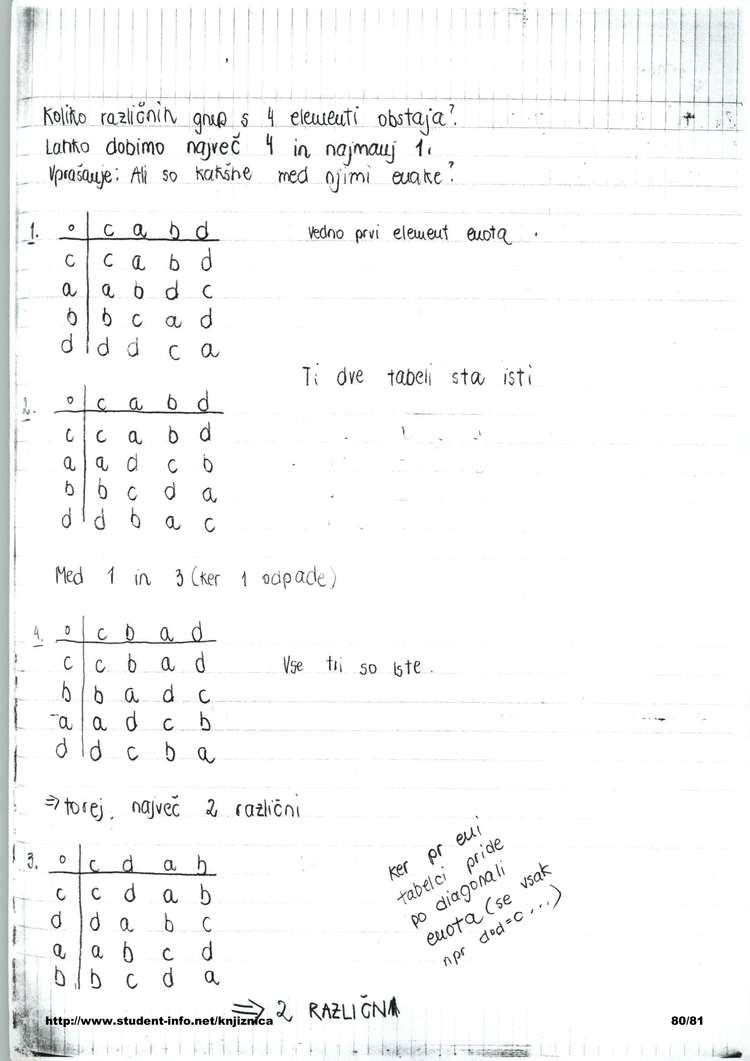 Koliko različnih grup s 4 elementi obstaja?
Lahko dobimo največ 4 in najmanj 1.
Vprašanje: Ali so kakšne med njimi enake?
1. o c a b d
Vedno prvi element enota.
c c a b d
a a b d c
b b c a d
d d d c a
Ti dve tabeli sta isti
2. o c a b d
c c a b d
a a d c b
b b c d a
d d b a c
Med 1 in 3 (ker 1 odpade)
4. o c b a d
c c b a d
Vse tri so iste.
b b a d c
a a d c b
d d c b a
⇒ torej, največ 2 različni
3. o c d a b
c c d a b
d d a b c
a a b c d
b b c d a
ker pr eni
tabelci pride
po diagonali
enota (se vsak
npr d∘d=c ...)
⇒ 2 RAZLIČNA
http://www.student-info.net/knjiznica
80/81